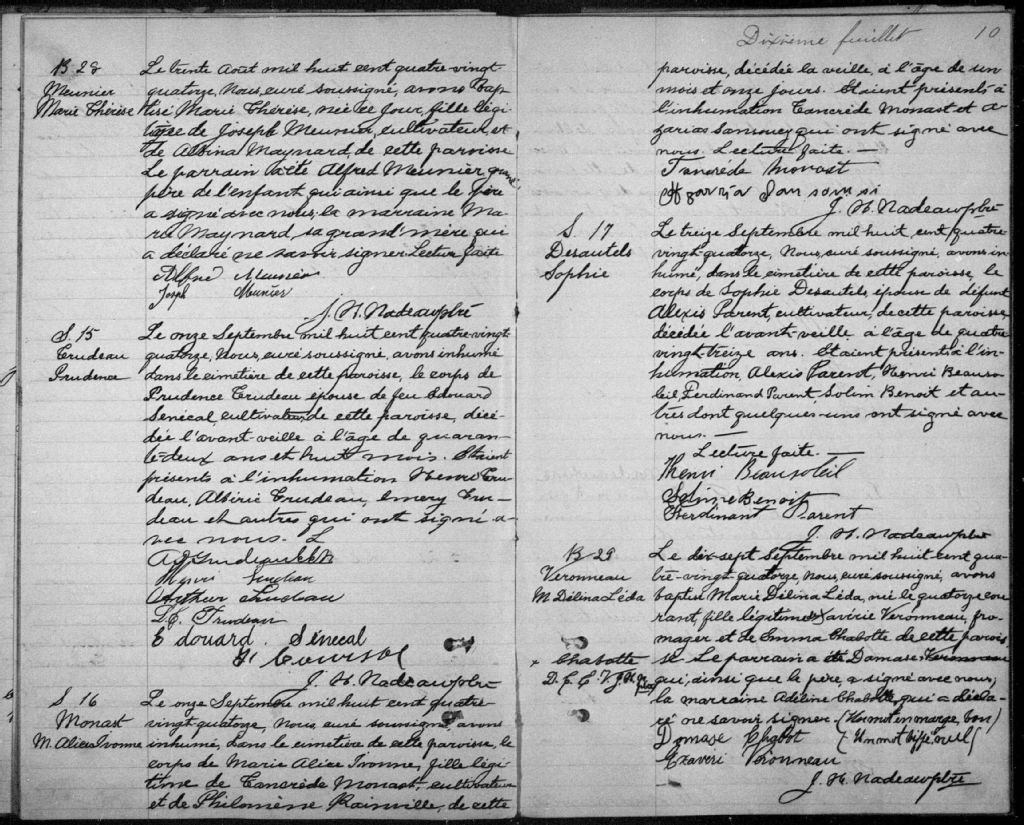 B. 28
Meunier
Marie Thérèse
Le trente Août mil huit cent quatre-vingt
quatorze, Nous, curé soussigné, avons bap-
tisé Marie Thérèse, née ce jour, fille légi-
time de Joseph Meunier, cultivateur, et
de Albina Maynard, de cette paroisse
Le parrain a été Alfred Meunier grand
père de l'enfant qui ainsi que le père
a signé avec nous; la marraine Ma-
rie Maynard, sa grand'mère qui
a déclaré ne savoir signer. Lecture faite
Alfred Meunier
Joseph Meunier
J. H. Nadeau, ptre
S. 15
Trudeau
Prudence
Le onze Septembre mil huit cent quatre-vingt-
quatorze, Nous, curé soussigné, avons inhumé
dans le cimetière de cette paroisse, le corps de
Prudence Trudeau épouse de feu Edouard
Senécal, cultivateur, de cette paroisse, décé-
dée l'avant-veille à l'âge de quaran-
te-deux ans et huit mois. Etaient
présents à l'inhumation Henri Tru-
deau, Albéric Trudeau, Emery Tru-
deau et autres qui ont signé a-
vec nous. L
Henri Trudeau
Arthur Trudeau
Trudeau
Edouard Sénécal
J. H. Nadeau, ptre
S. 16
Monast
M. Alice Ivonne
Le onze Septembre mil huit cent quatre-
vingt-quatorze, Nous, curé soussigné, avons
inhumé, dans le cimetière de cette paroisse, le
corps de Marie Alice Ivonne, fille légi-
time de Tancrède Monast, cultivateur
et de Philomène Rainville, de cette
Dixième feuillet 10
paroisse, décédée la veille, à l'âge de un
mois et onze jours. Etaient présents à
l'inhumation Tancrède Monast et A-
zarias Sansoucy qui ont signé avec
nous. Lecture faite. —
Tancrède Monast
Azaria Sansousi
J. H. Nadeau, ptre
S. 17
Desautels
Sophie
Le treize Septembre mil huit cent quatre-
vingt-quatorze, Nous, curé soussigné, avons in-
humé, dans le cimetière de cette paroisse, le
corps de Sophie Desautels, épouse de défunt
Alexis Parent, cultivateur, de cette paroisse,
décédée l'avant-veille à l'âge de quatre
vingt-treize ans. Etaient présents à l'in-
humation, Alexis Parent, Henri Beauso-
leil Ferdinand Parent, Solim Benoit et au-
tres dont quelques-uns ont signé avec
nous. —
Lecture faite. —
Henri Beausoleil
Solime Benoit
Ferdinant Parent
J. H. Nadeau, ptre
B. 29
Veronneau
M. Délina Léda
Le dix-sept Septembre mil huit cent qua-
tre-vingt-quatorze, nous, curé soussigné, avons
baptisé Marie Délina Léda, née le quatorze cou-
rant, fille légitime d'Exavérie Veronneau, fro-
mager et de Emma Chabotte de cette parois-
se. Le parrain a été Damase Veronneau ×
qui, ainsi que le père, a signé avec nous;
la marraine Adéline Chabotte, qui a décla-
ré ne savoir signer. (Un mot en marge, bon)
(Un mot biffé, nul)
× Chabotte
Domase Chabot
Exaveri Véronneau
J. H. Nadeau, ptre